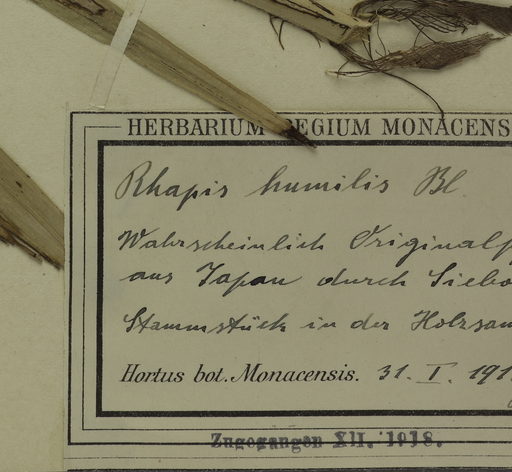 HERBARIUM REGIUM MONACENS
Rhapis humilis Bl.
Wahrscheinlich Originalp
aus Japan durch Siebo
Stammstück in der Holzsam
Hortus bot. Monacensis. 31. I. 191
Zugegangen XII. 1918.